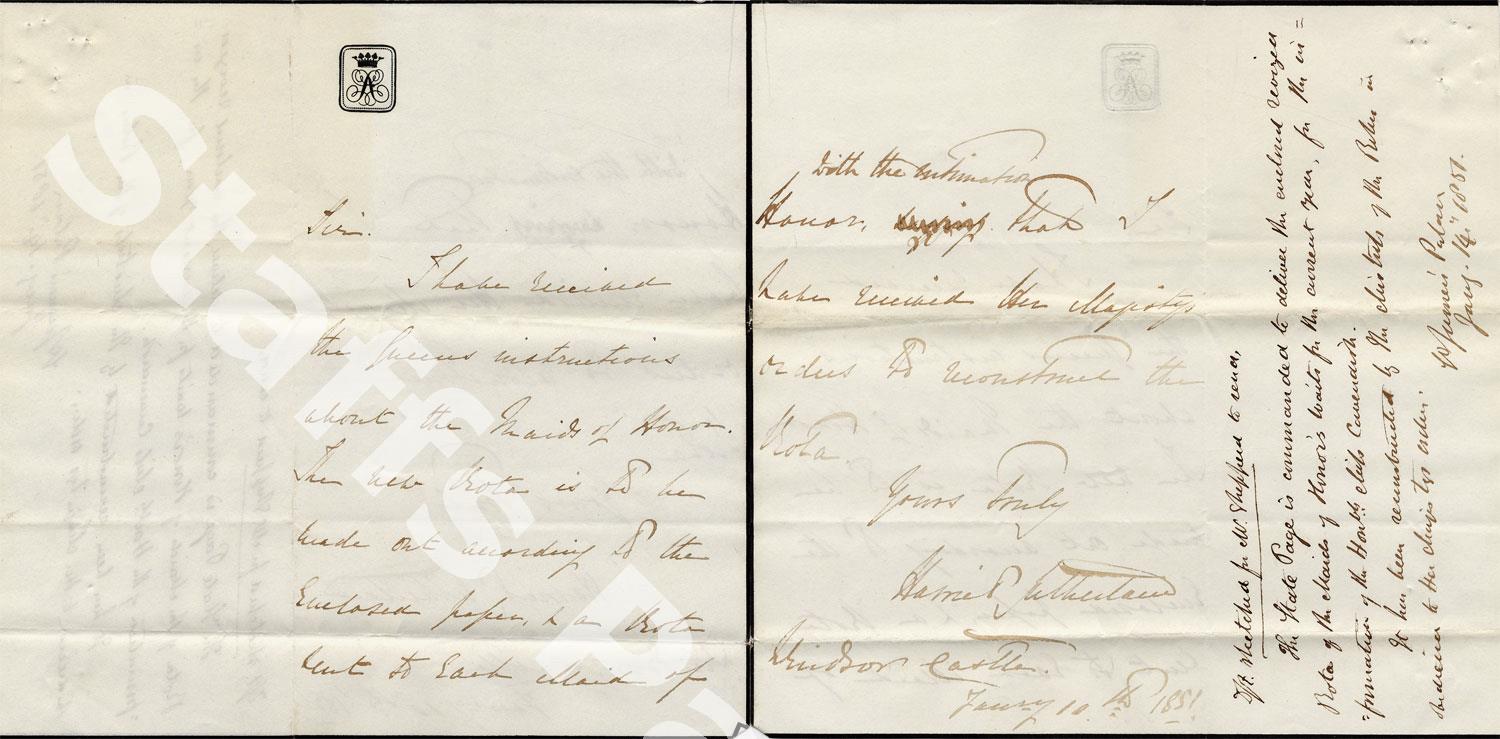 Sir.
I have received
the Queens instructions
about the Maids of Honor.
The new Rota is to be
made out according to the
Enclosed paper, & a Rota
sent to Each Maid of
with the intimation
Honor, saying that I
have received Her Majesty's
orders to reconstruct the
Rota.
Yours Truly
Harriet Sutherland
Windsor Castle.
Janry 10th 1851
Sketched for Mr. Sheppard to send,
The State Page is commanded to deliver the enclosed revized
Rota of the Maids of Honor's waits for the current year, for the in=
=formation of the Honble. Miss Cavendish.
It has been reconstructed by the Mistress of the Robes in
obedience to Her Majesty's orders.
St. James's Palace
Jany. 14. 1851.
Staffs Pa